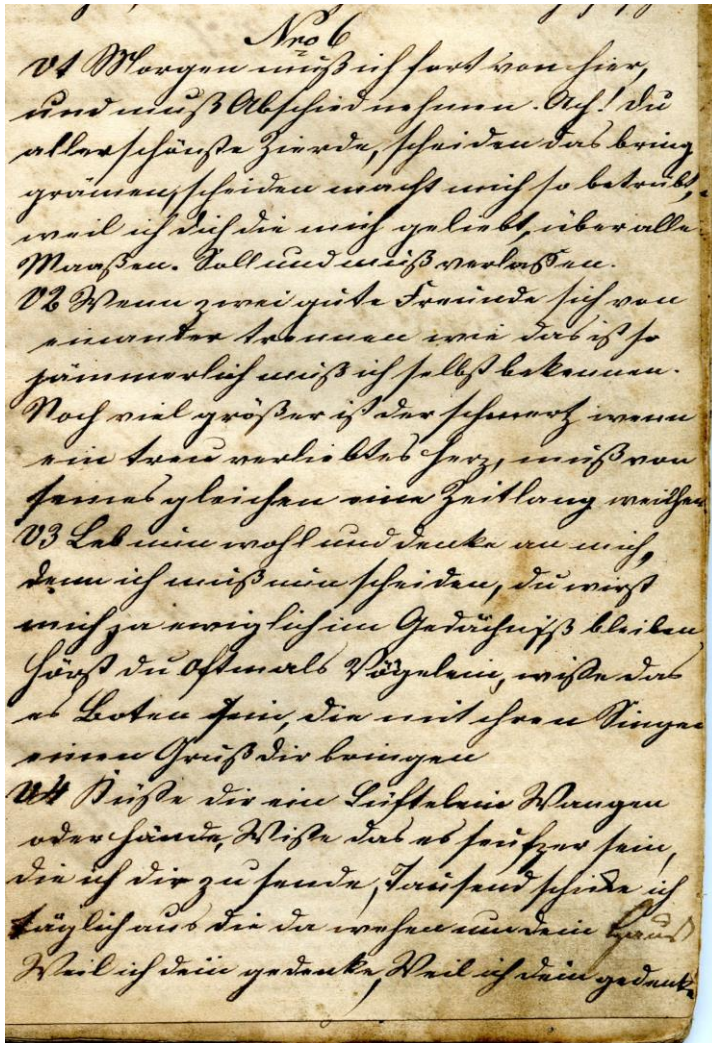 Nro 6
V1 Morgen muß ich fort von hier,
und muß Abschied nehmen. Ach! du
allerschönste Zierde, scheiden das bring
grämen, scheiden macht mich so betrübt,
weil ich dich die mich geliebt, über alle
Maaßen. Soll und muß verlassen.
V2 Wenn zwei gute Freunde sich von
einander trennen wie das ist so
jämmerlich muß ich selbst bekennen.
Noch viel größer ist der schmertz wenn
ein treu verliebtes Herz, muß von
seines gleichen eine Zeitlang weichen
V3 Leb nun wohl und denke an mich,
denn ich muß nun scheiden, du wirst
mich ja ewiglich im Gedächniß bleiben
Hörst du oftmals Vögelein, wisse das
es Boten sein, die mit ihren Singen
einen Gruß dir bringen
V4 Küsse dir ein Lüftelein Wangen
oder Hände, Wisse das es seufzer sein,
die ich dir zu sende, Tausend schicke ich
täglich aus die da wehen um dein Hauß
Weil ich dein gedenke, Weil ich dein gedenke